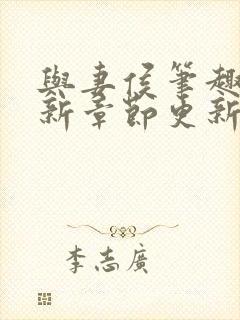 與妻侯筆趣
新章節更新
李志廣